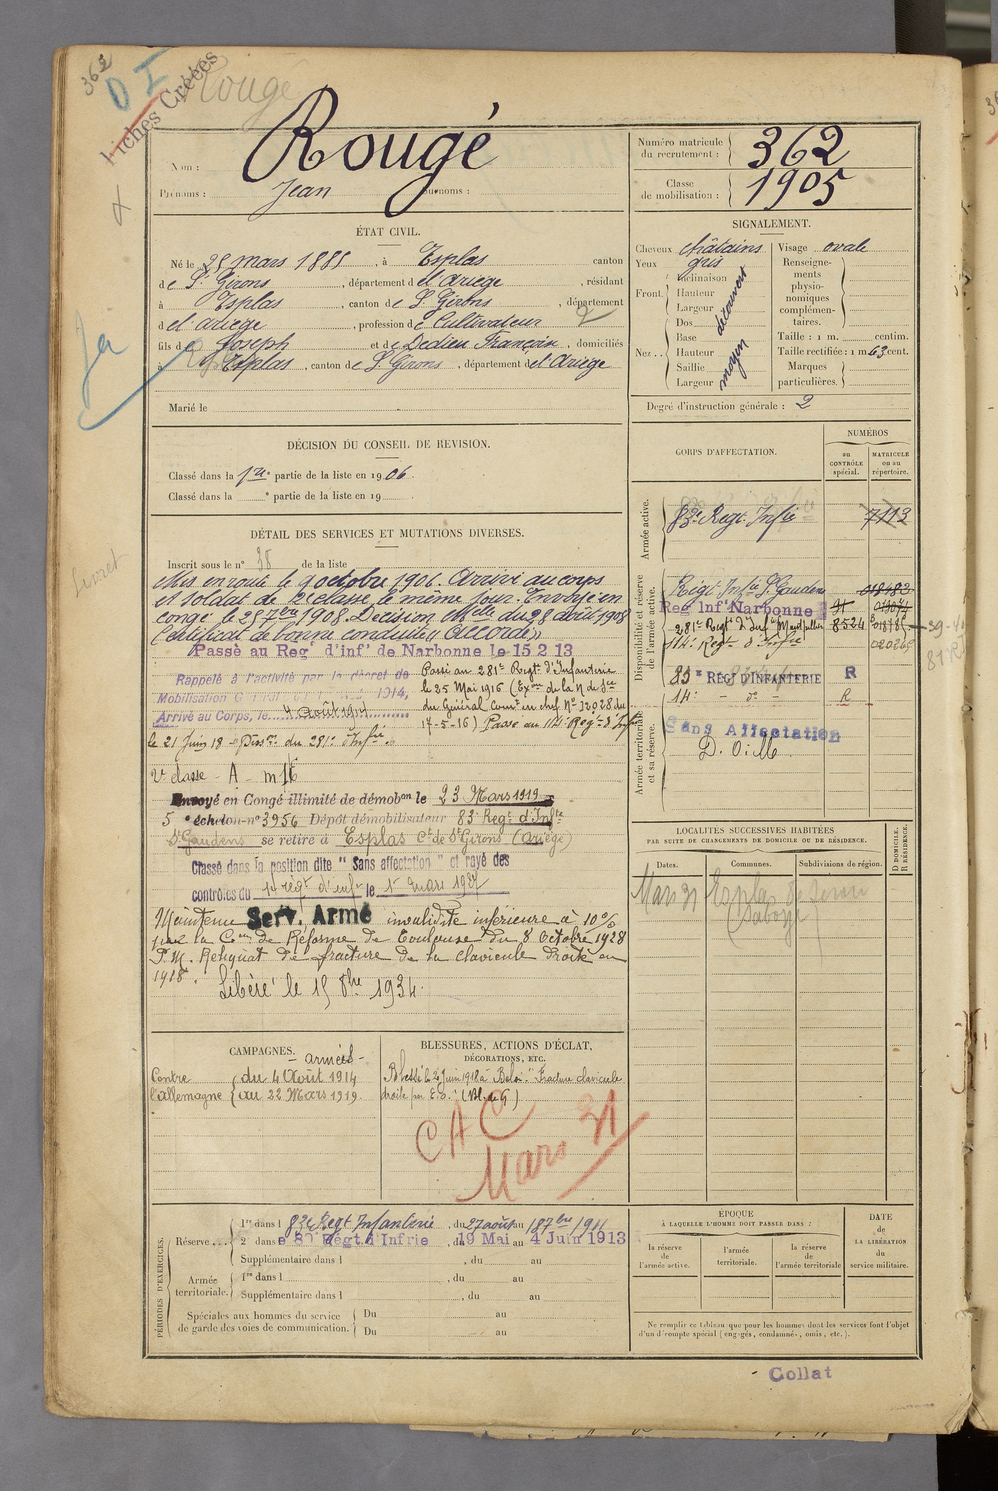 362
D I
Fiches Créées
Rougé
Nom : Rougé
Prénoms : Jean Surnoms :
Numéro matricule du recrutement : 362
Classe de mobilisation : 1905
ÉTAT CIVIL.
Né le mars 1885, à Esplas canton
de St Girons, département d el'ariège, résidant
à Esplas, canton de St Girons, département
d el'ariège, profession de Cultivateur
fils de Joseph et de Dedieu Françoise, domiciliés
à Esplas, canton de St Girons, département d el'ariège
Marié le
SIGNALEMENT.
Cheveux châtains
Yeux gris
Front. Inclinaison
Hauteur
Largeur
découvert
Nez. Dos
Base
Hauteur
Saillie
Largeur
moyen
Visage ovale
Renseigne-
ments
physio-
nomiques
complémen-
taires.
Taille : 1 m. centim.
Taille rectifiée : 1 m. 63 cent.
Marques
particulières.
Degré d'instruction générale : 2
DÉCISION DU CONSEIL DE REVISION.
Classé dans la 1re partie de la liste en 1906.
Classé dans la e partie de la liste en 19
DÉTAIL DES SERVICES ET MUTATIONS DIVERSES.
Inscrit sous le n° 38 de la liste
Mis en route le 9 octobre 1906. Arrivé au corps
et soldat de 2e classe le même jour. Envoyé en
congé le 25 7bre 1908. Décision Mlle du 28 août 1908
Certificat de bonne conduite « Accordé »
Passé au Regt d'inf' de Narbonne le 15 2 13
Rappelé à l'activité par le décret de
Mobilisation Générale 1914,
Arrivé au Corps, le 4 août 1914
le 21 Juin 18 Pass. du 281e d'Infie
Passé au 281e Regt d'Infanterie
le 25 Mai 1916 (Exon de la N de Sce
du Général Comt en chef No 13028 du
17-5-16) Passé au 114e Reg. d'Infie
2e classe - A - m
Envoyé en Congé illimité de démobon le 23 Mars 1919
5 e échelon n° 3956 Dépôt démobilisateur 83e Regt d'Infie
St Gaudens se retire à Esplas Ct de St Girons (Ariège)
Classé dans la position dite " Sans affectation " et rayé des
contrôles du 14e régt d'inf le 1er mars 1927
Maintenu Serv. Armé invalidité inférieure à 10%
par la Con de Réforme de Toulouse du 8 Octobre 1928
P.M. Reliquat de fracture de la clavicule droite en
1918.
Libéré le 15 8bre 1934.
CORPS D'AFFECTATION.
NUMÉROS
au CONTRÔLE spécial.
MATRICULE ou au répertoire.
Armée active.
83e Regt Infie 7113
Disponibilité et réserve de l'armée active.
Régt Infie St Gaudens
Reg Inf' Narbonne
281e Regt d'Infie Montpellier 8524
114e Regt d'Infie 020265
83e RÉGt D'INFANTERIE R
14e - do - R
Armée territoriale et sa réserve.
Sans Affectation
D. O. M.
LOCALITÉS SUCCESSIVES HABITÉES
PAR SUITE DE CHANGEMENTS DE DOMICILE OU DE RÉSIDENCE.
Dates. Communes. Subdivisions de région. D DOMICILE. R RÉSIDENCE.
Mars 31 Esplas de Serou
CAMPAGNES.
Contre l'allemagne
armées
du 4 Août 1914
au 22 Mars 1919.
BLESSURES, ACTIONS D'ÉCLAT,
DÉCORATIONS, ETC.
Blessé le 2 Juin 1918 à "Fracture clavicule
droite par E.O." (Bl. de G)
CAC
Mars 31
PÉRIODES D'EXERCICES.
Réserve 1re dans l 83e Regt Infanterie, du 27 août au 18 7bre 1911
2e dans le 80 Régt d'Infrie, du 19 Mai au 4 Juin 1913
Supplémentaire dans l , du au
Armée territoriale. 1re dans l , du au
Supplémentaire dans l , du au
Spéciales aux hommes du service
de garde des voies de communication.
Du au
Du au
ÉPOQUE
À LAQUELLE L'HOMME DOIT PASSER DANS :
la réserve de l'armée active.
l'armée territoriale.
la réserve de l'armée territoriale
DATE de LA LIBÉRATION du service militaire.
Ne remplir ce tableau que pour les hommes dont les services font l'objet
d'un décompte spécial (engagés, condamnés, omis, etc.).
Collat